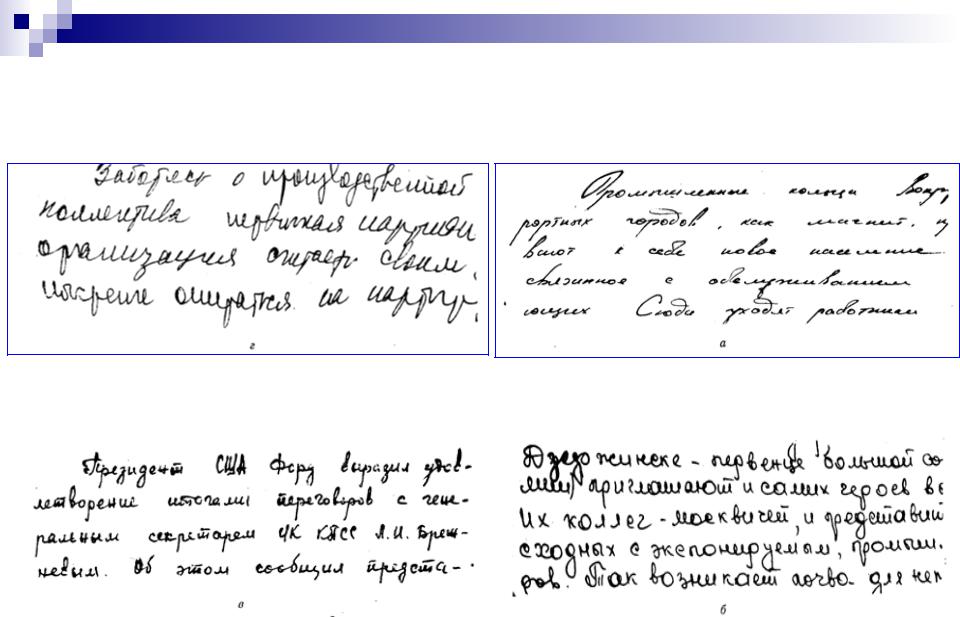 Заботясь о производственной
коллектива первичная партийн
организация считает своим
искренне опираться на партгру
г
Промышленные кольца вокру
рортных городов, как магнит,
вают к себе новое население
связанное с обслуживанием
ющих Сюда уходят работники
а
Президент США Форд выразил удов-
летворение итогами переговоров с гене-
ральным секретарем ЦК КПСС Л.И. Бреж-
невым. Об этом сообщил предста-
в
Дзержинске - первенце большой со
приглашают и самих героев вс
Их коллег - москвичей, и представи
сходных с экспонируемым, громыш.
ров. Так возникает почва для неп
б